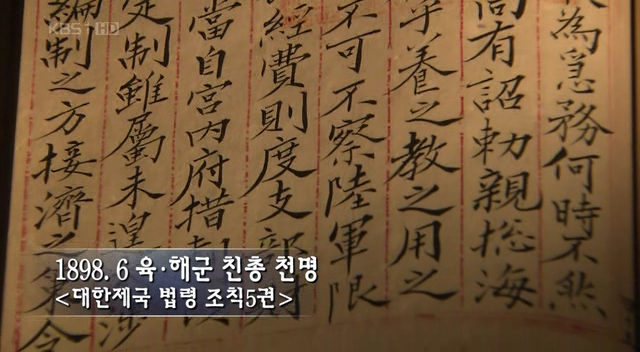 KBS1 HD
為急務何時不然
有詔勅親揔海
養之教之用之
不可不察陸軍限
經費則度支部
當自宮內府措
定制雖屬未遑
編制之方接濟之
1898. 6 육·해군 친총 천명
<대한제국 법령 조칙5권>